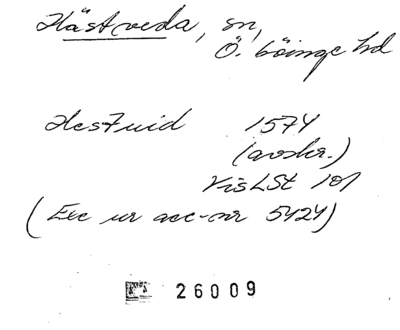 Hästveda, sn,
Ö. Göinge hd
Hestuid 1574
(avskr.)
VisLSt 101
(Exc ur acc-nr 5424)
26009